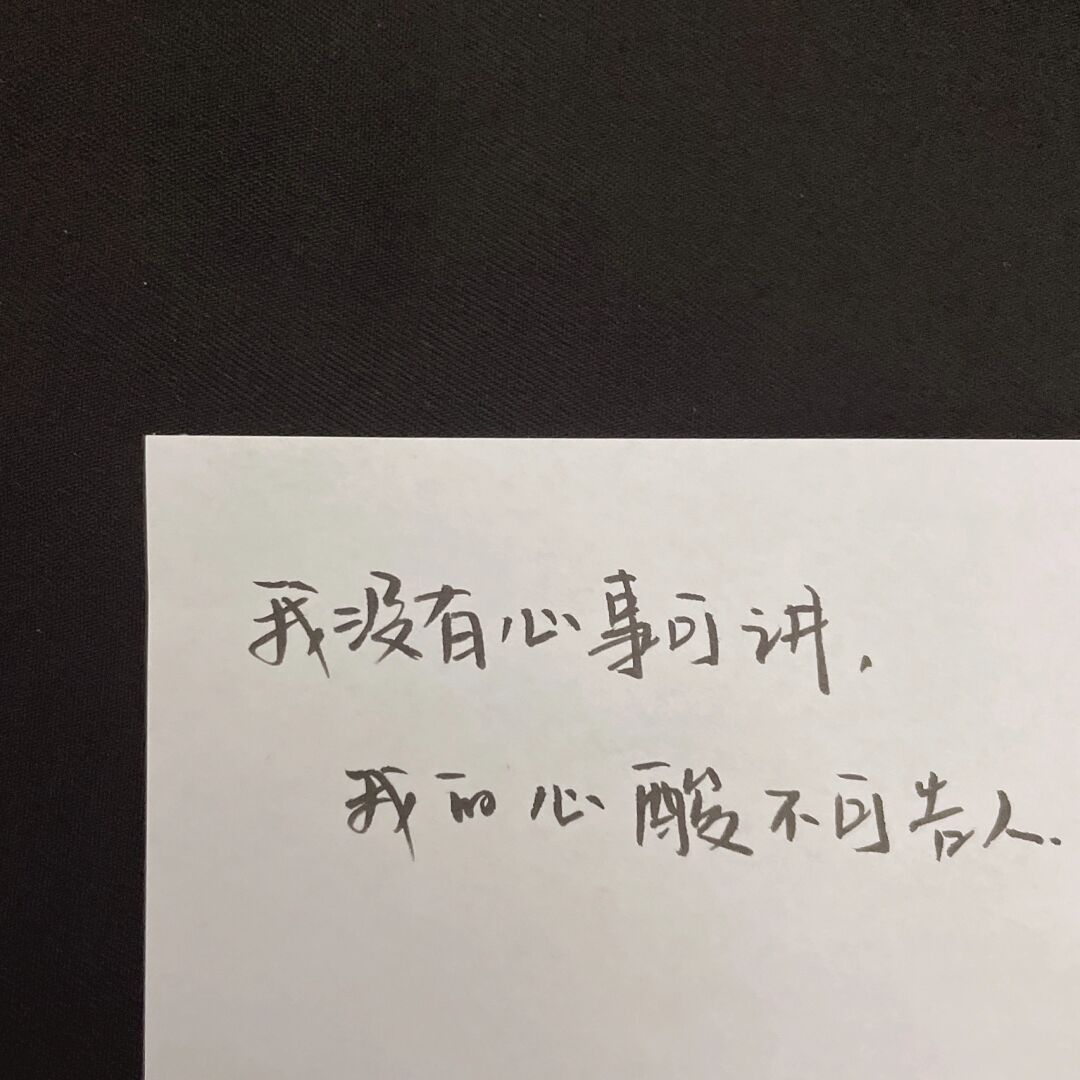 我没有心事可讲，
我的心酸不可告人.